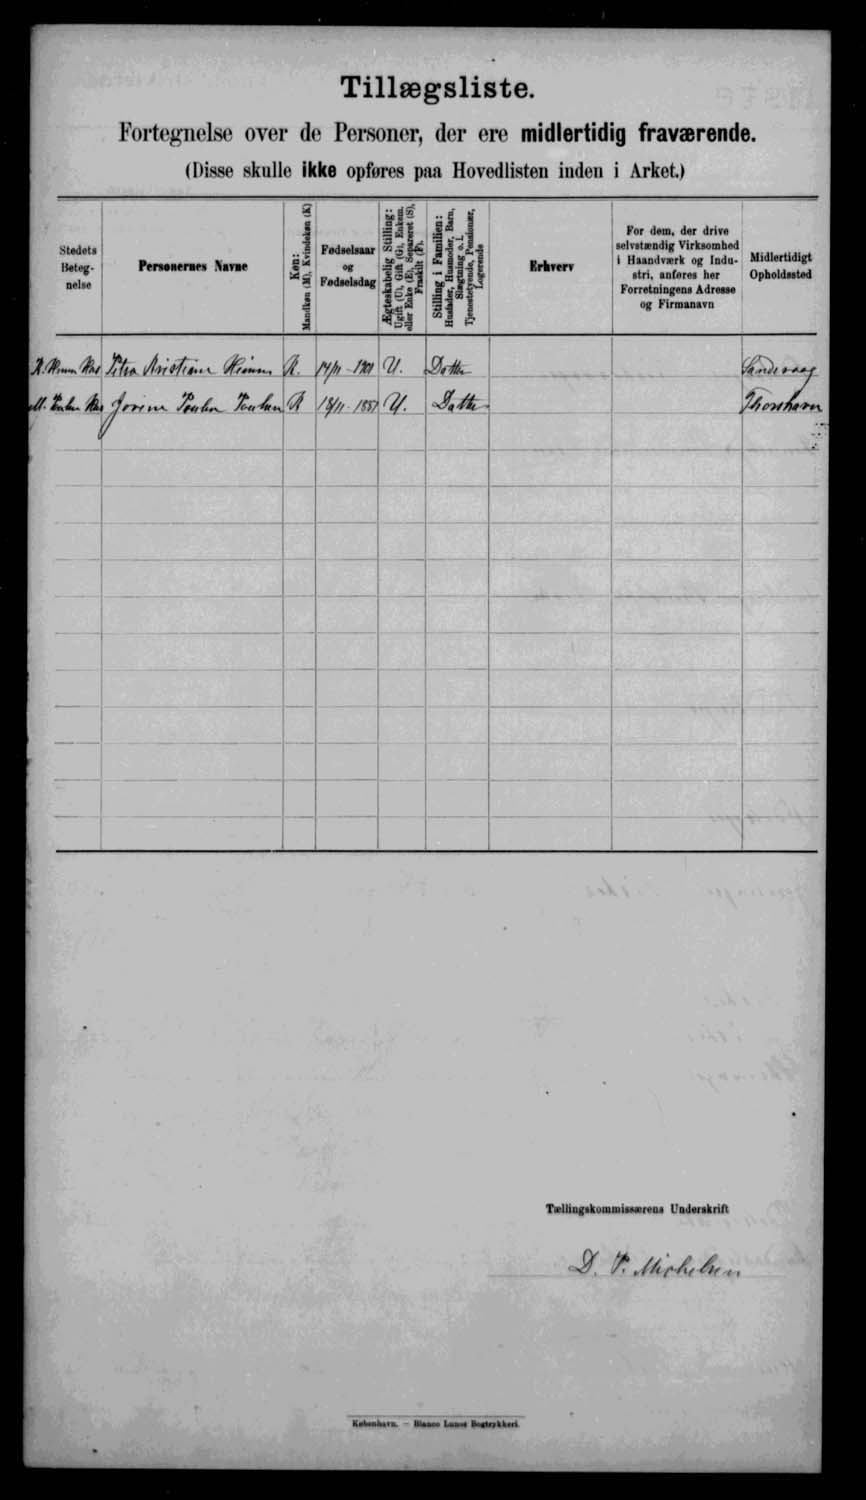 Tillægsliste.
Fortegnelse over de Personer, der ere midlertidig fraværende.
(Disse skulle ikke opføres paa Hovedlisten inden i Arket.)
Stedets Betegnelse
Personernes Navne
Køn: Mandkøn (M), Kvindekøn (K)
Fødselsaar og Fødselsdag
Ægteskabelig Stilling: Ugift (U), Gift (G), Enkem. eller Enke (E), Separeret (S), Fraskilt (F).
Stilling i Familien: Husfader, Husmoder, Barn, Slægtning o. l. Tjenestetyende, Pensionær, Logerende
Erhverv
For dem, der drive selvstændig Virksomhed i Haandværk og Industri, anføres her Forretningens Adresse og Firmanavn
Midlertidigt Opholdssted
Petra Kristiane K. 14/11 - 1901 U. Datter Sandevaag
M. Poulsen Hus Poulsen Poulsen K 18/11 - 1887 U. Datter Thorshavn
Tællingskommissærens Underskrift
D. P. Michelsen
København. — Bianco Lunos Bogtrykkeri.